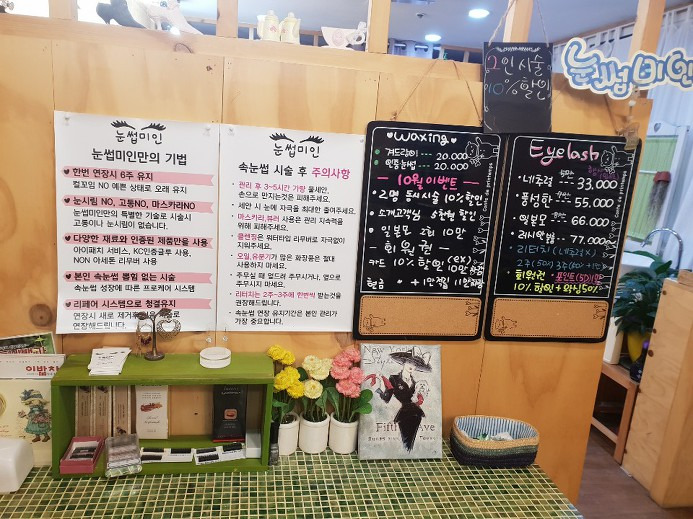 눈썹미인
눈썹미인만의 기법
한번 연장시 6주 유지
컬꼬임 NO 예쁜 상태로 오래 유지
눈시림 NO, 고통NO, 마스카라NO
눈썹미인만의 특별한 기술로 시술시
고통이나 눈시림이 없습니다.
다양한 재료와 인증된 제품만을 사용
아이패치 서비스, KC인증글루 사용,
NON 아세톤 리무버 사용
본인 속눈썹 뽑힘 없는 시술
속눈썹 성장에 따른 프로케어 시스템
리페어 시스템으로 청결유지
연장시 새로 제거후
연장해드립니다.
눈썹미인
속눈썹 시술 후 주의사항
관리 후 3~5시간 가량 물세안,
손으로 만지는것은 피해주세요.
세안 시 눈에 자극을 최대한 줄여주세요.
마스카라, 뷰러 사용은 관리 지속력을
위해 피해주세요.
클렌징은 워터타입 리무버로 자극없이
지워주세요.
오일, 유분기가 많은 화장품은 절대
사용하지 마세요.
주무실 때 엎드려 주무시거나, 옆으로
주무시지 마세요.
리터치는 2주~3주에 한번씩 받는것을
권장해드립니다.
속눈썹 연장 유지기간은 본인 관리가
가장 중요합니다.
2인 시술
10%할인
눈썹미인
Waxing
겨드랑이 --- 20.000
인중눈썹 --- 20.000
10월 이벤트
2명 동시시술 10%할인
소개고객님 5천원 할인
일본모 2회 10만
회원권
카드 10% 할인
현금
Eyelash
네추럴 33.000
풍성한 55.000
일본모 66.000
러시앗볼륨 77.000
리터치
회원권 - 포인트
10% 할인 + 와싱50%
New York
Fifth Ave